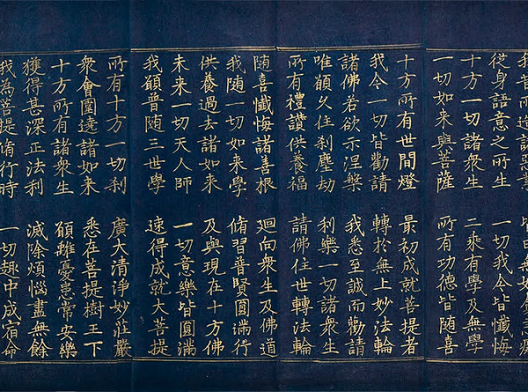 從身語意之所生 一切我今皆懺悔
十方一切諸衆生 二乘有學及無學
一切如來與菩薩 所有功德皆隨喜
十方所有世間燈 最初成就菩提者
我今一切皆勸請 轉於無上妙法輪
諸佛若欲示涅槃 我悉至誠而勸請
唯願久住刹塵劫 利樂一切諸衆生
所有禮讚供養福 請佛住世轉法輪
隨喜懺悔諸善根 迴向衆生及佛道
我隨一切如來學 脩習普賢圓滿行
供養過去諸如來 及與現在十方佛
未來一切天人師 一切意樂皆圓滿
我願普隨三世學 速得成就大菩提
所有十方一切刹 廣大清淨妙莊嚴
衆會圍遶諸如來 悉在菩提樹王下
十方所有諸衆生 願離憂患常安樂
獲得甚深正法利 滅除煩惱盡無餘
我為菩提脩行時 一切趣中成宿命